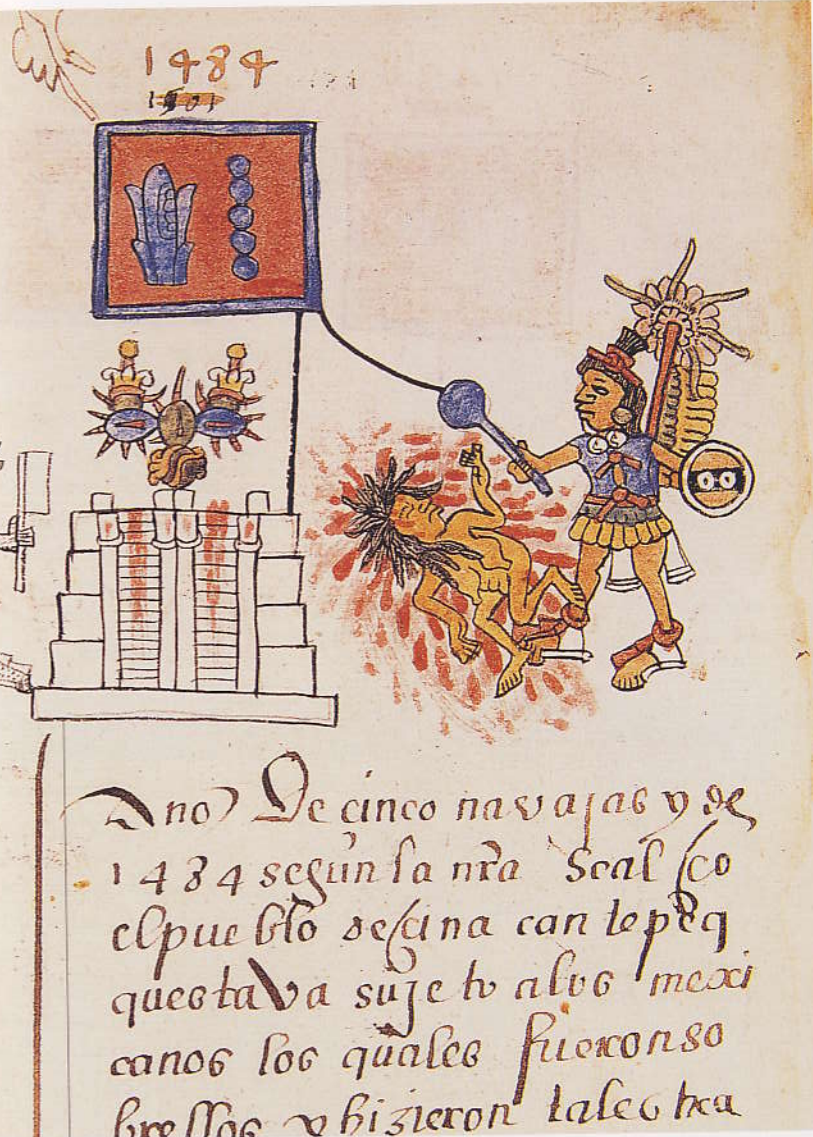 1484
Ano De cinco navajas y de
1484 segun la nra Se alço
el pueblo de çinacantepeq
questava sujeto alos mexi
canos los quales fueron so
brellos y hizieron tales tra